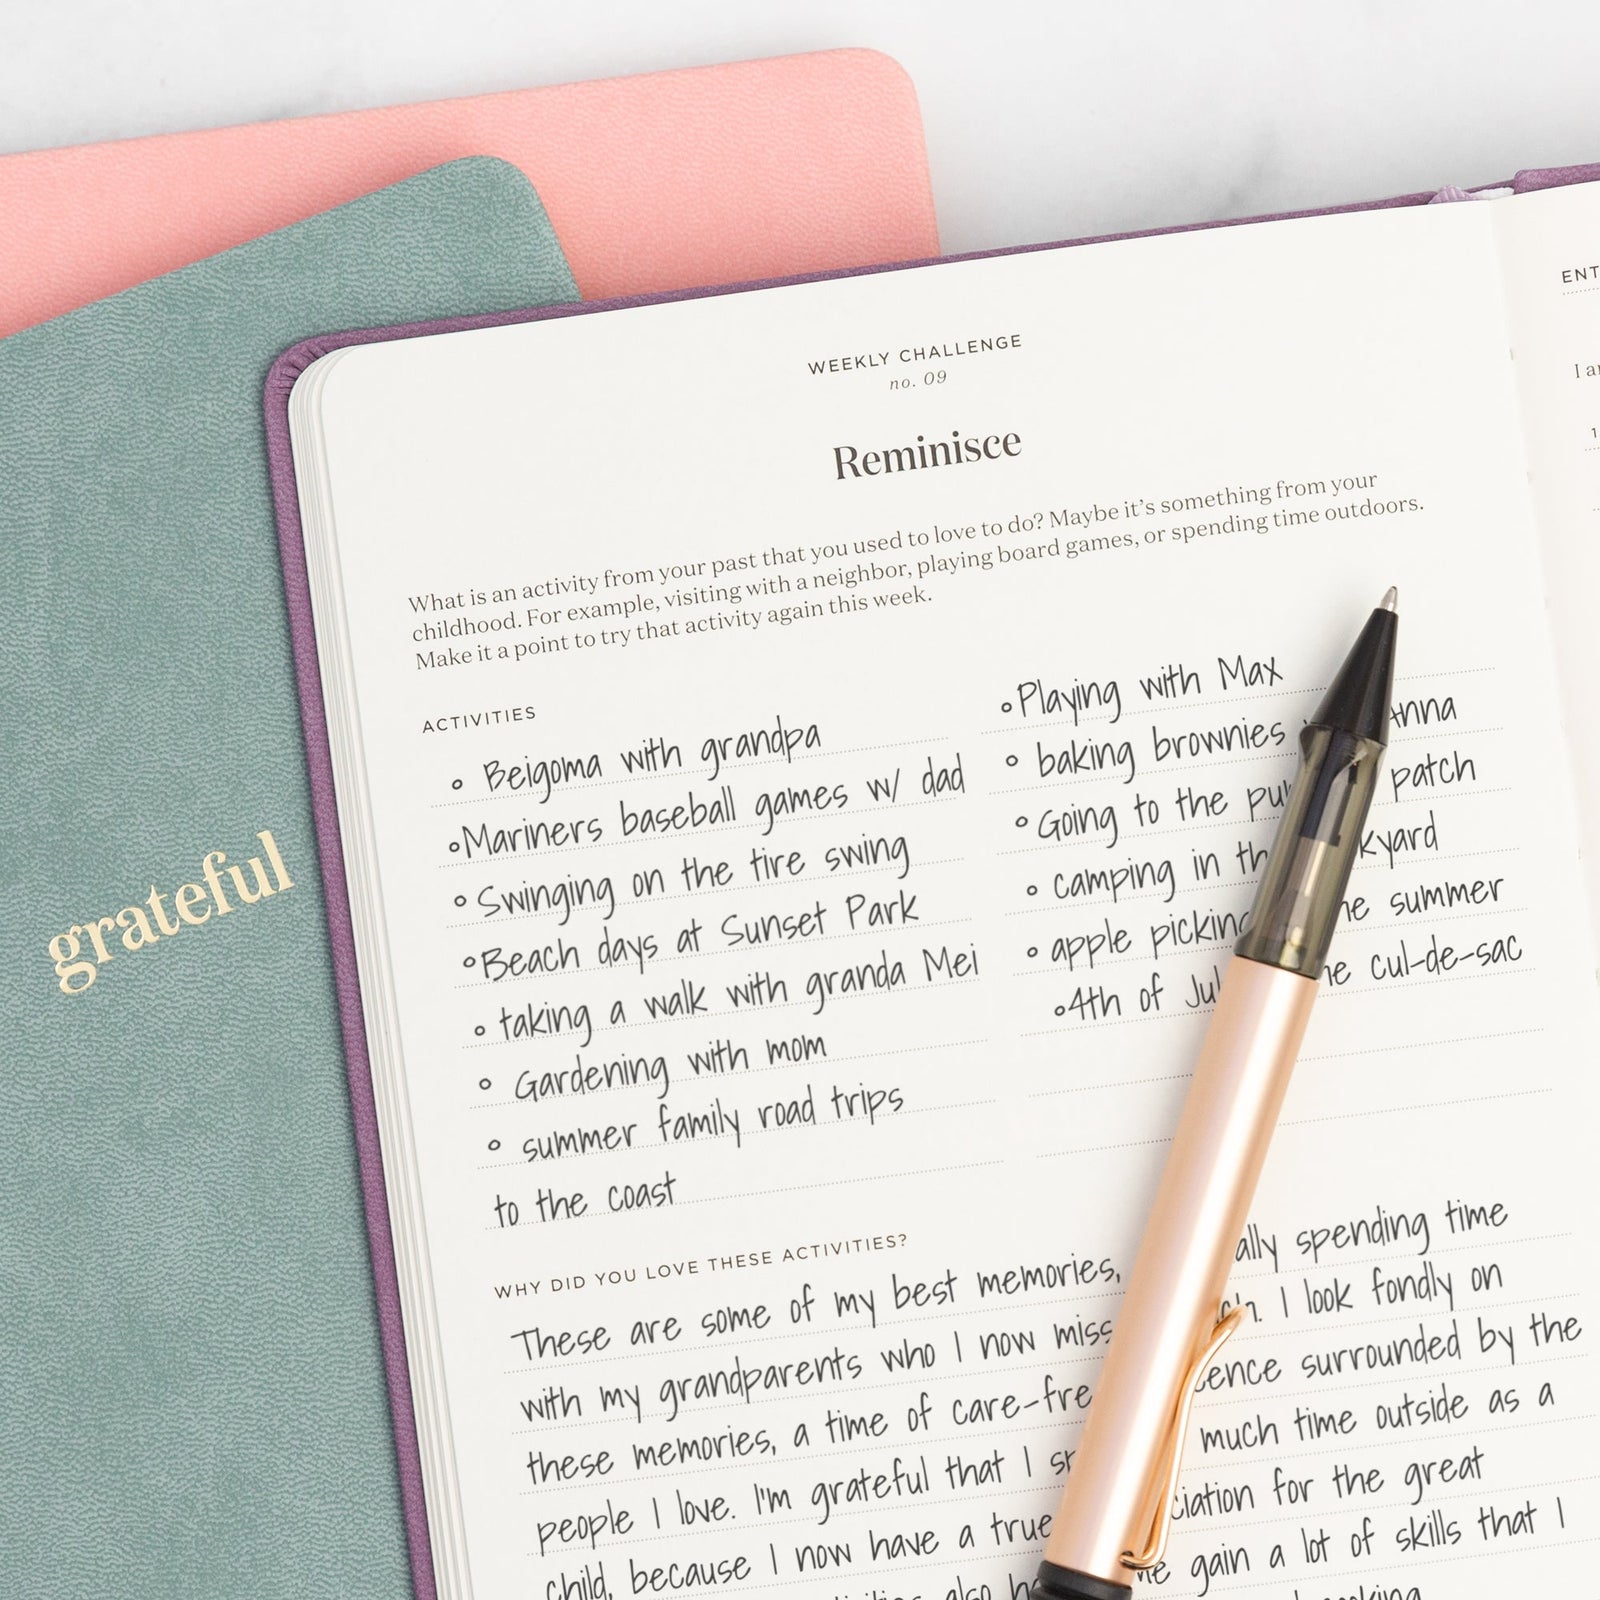 grateful
WEEKLY CHALLENGE
no. 09
Reminisce
What is an activity from your past that you used to love to do? Maybe it's something from your
childhood. For example, visiting with a neighbor, playing board games, or spending time outdoors.
Make it a point to try that activity again this week.
ACTIVITIES
Beigoma with grandpa
Mariners baseball games w/ dad
Swinging on the tire swing
Beach days at Sunset Park
taking a walk with granda Mei
Gardening with mom
summer family road trips
to the coast
Playing with Max
baking brownies
Going to the patch
camping in
apple picking summer
4th of cul-de-sac
WHY DID YOU LOVE THESE ACTIVITIES?
These are some of my best memories, spending time
with my grandparents who I now miss I look fondly on
these memories, a time of surrounded by the
people I love. I'm grateful that I much time outside as a
child, because I now have a true for the great
also gain a lot of skills that I
ENT
I
1